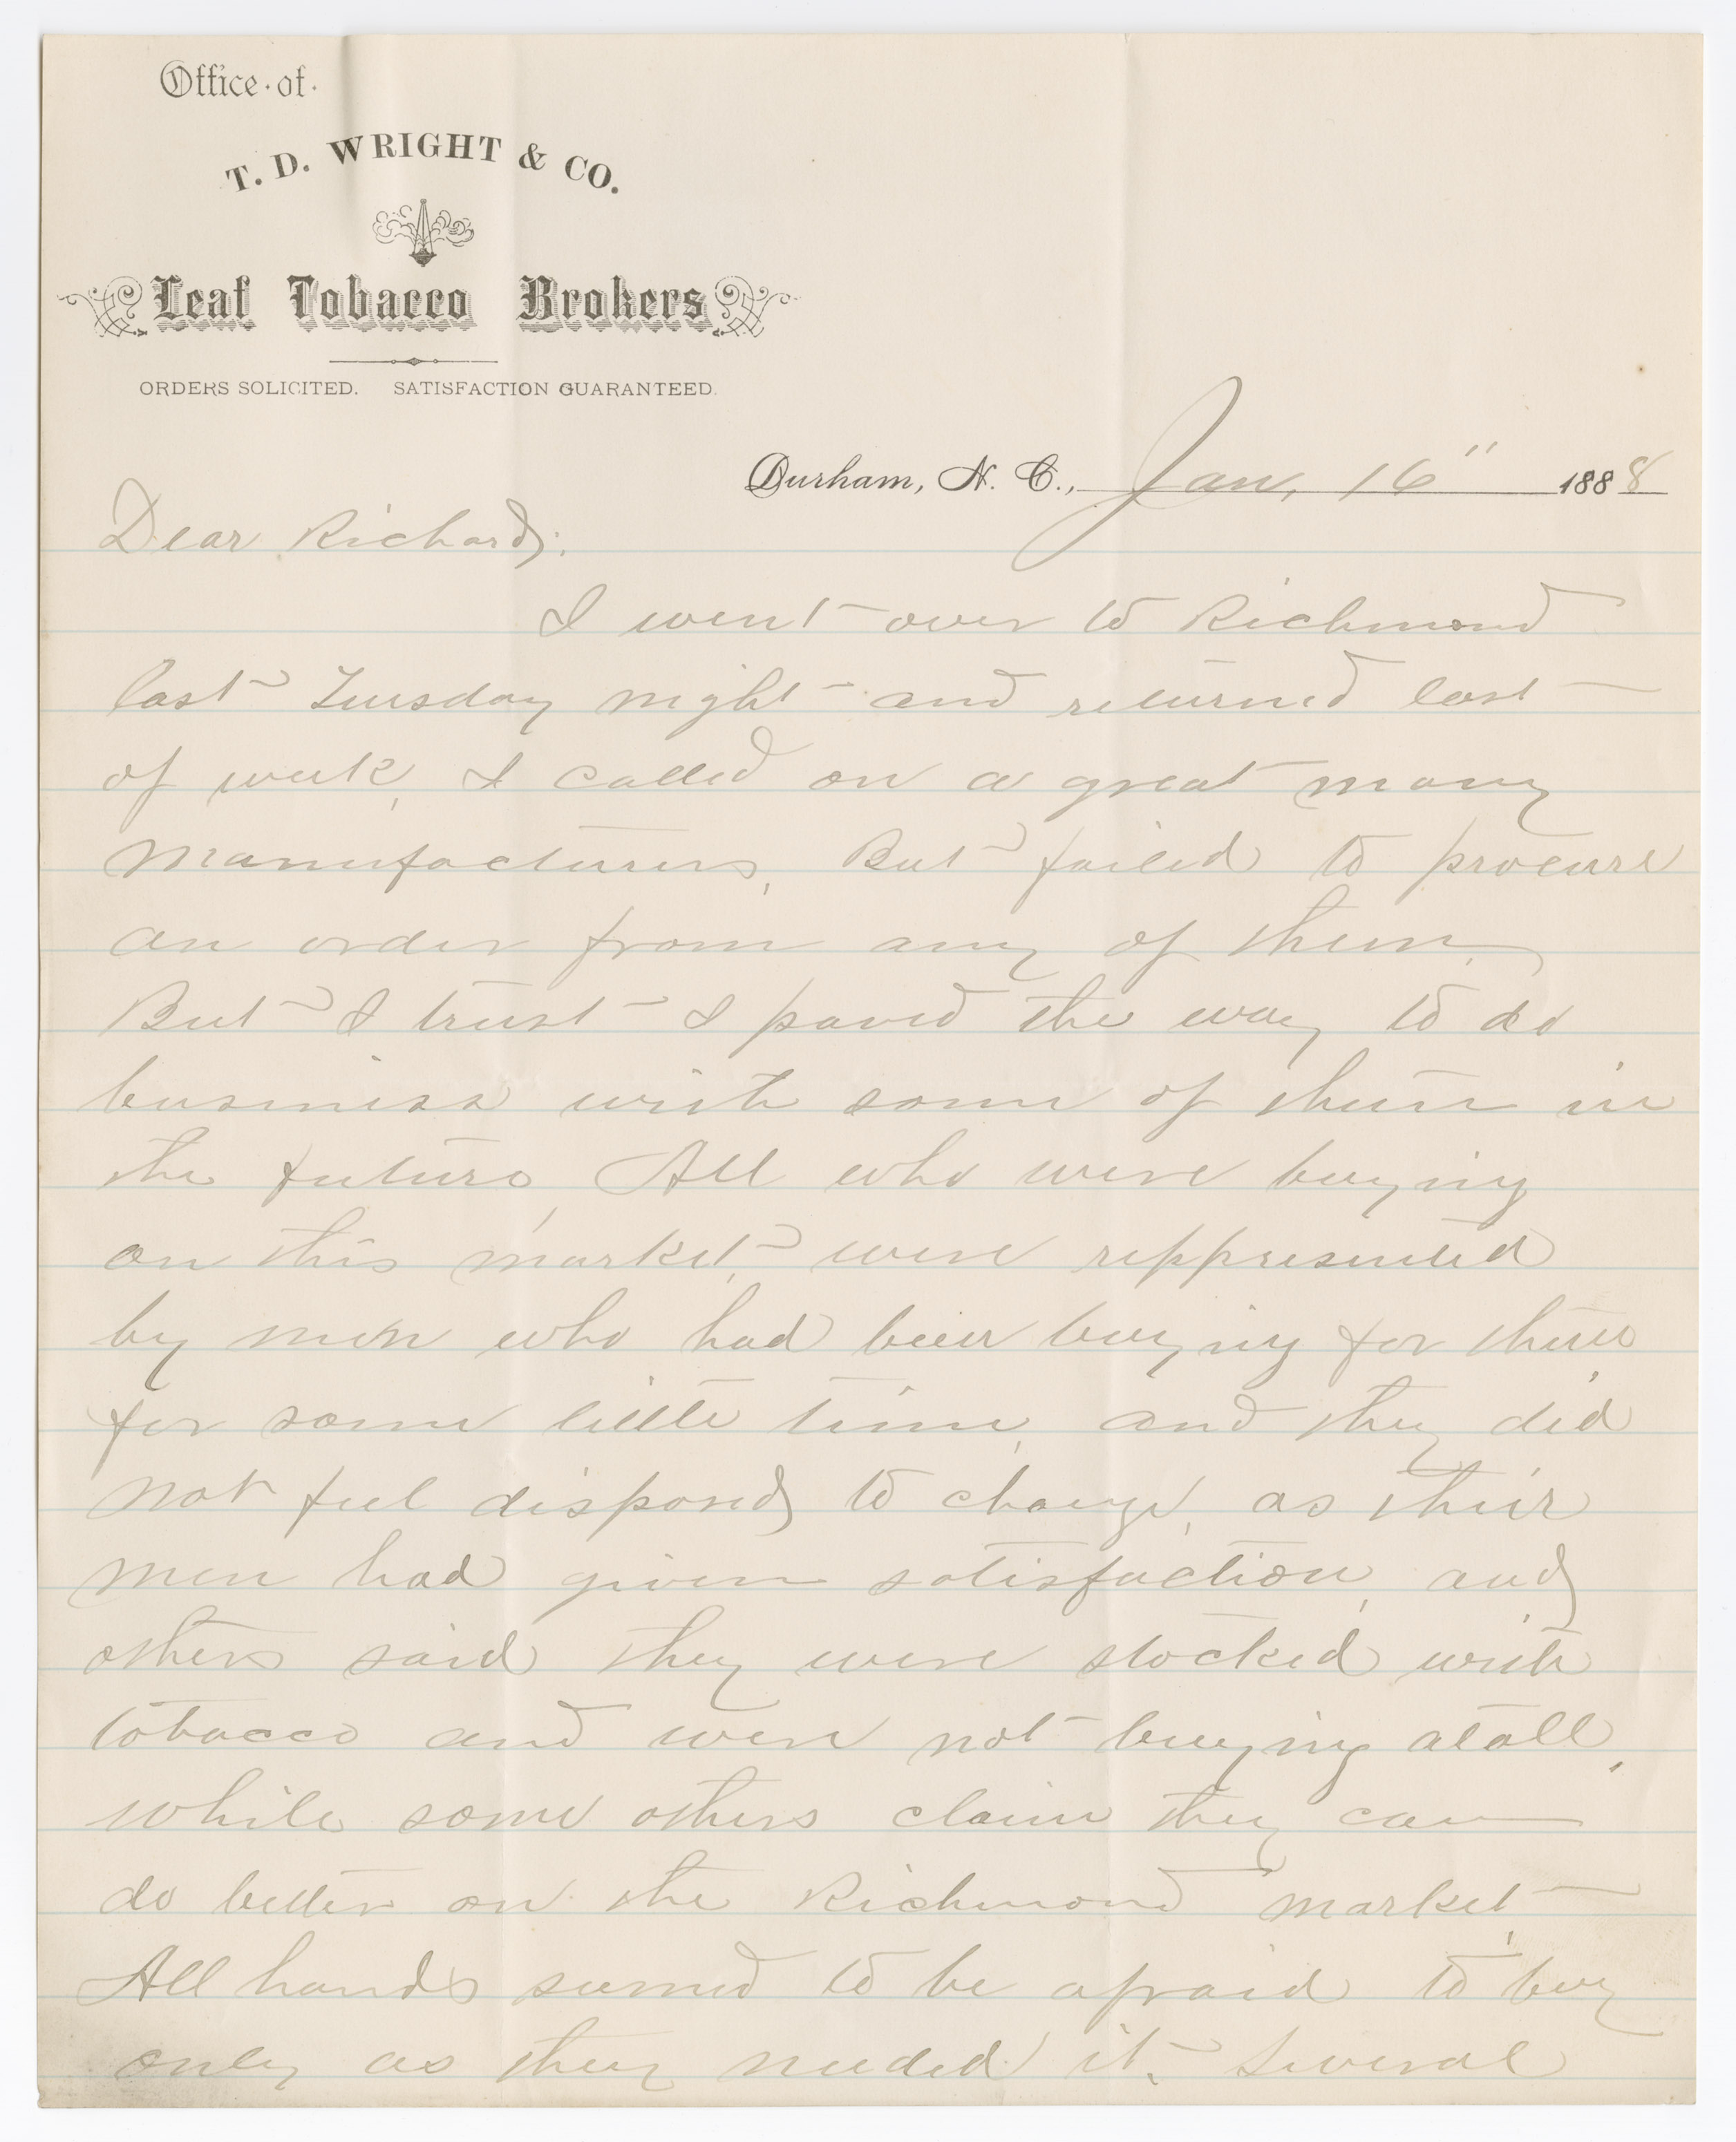 Office of
T. D. WRIGHT & CO.
Leaf Tobacco Brokers
ORDERS SOLICITED. SATISFACTION GUARANTEED.
Durham, N. C., Jan, 16" 1888
Dear Richard;
I went over to Richmond
last Tuesday night and returned last
of week, I called on a great many
manufacturers, But failed to procure
an order from any of them.
But I trust I paved the way to do
business with some of them in
the future, All who were buying
on this market, were reppresented
by men who had been buying for them
for some little time, and they did
not feel disposed to change, as their
men had given satisfaction, and
others said they were stocked with
tobacco and were not buying atall,
while some others claim they can
do better on the Richmond market,
All hands seemed to be afraid to buy
only as they needed it. Several